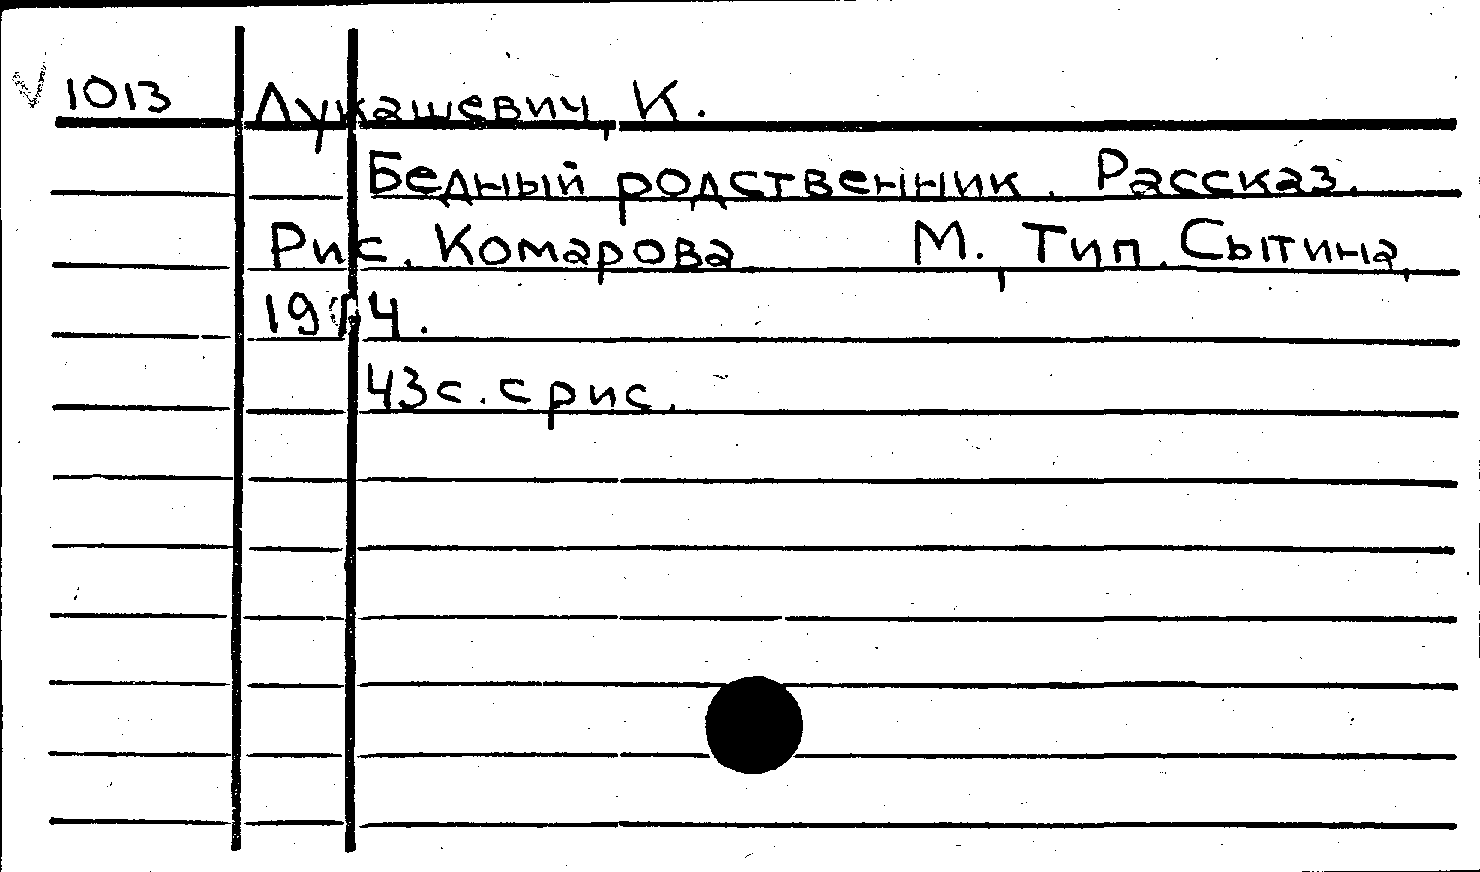 1013 Лукашевич, К.
Бедный родственник. Рассказ.
Рис. Комарова М., Тип. Сытина,
1914.
43с. с рис.